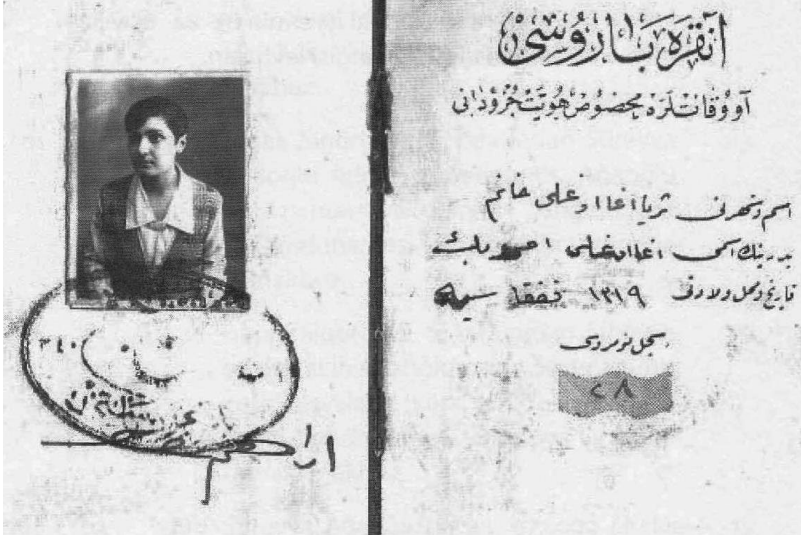 آنقره باروسی
آووقاتلره مخصوص هویت جزودانی
اسم و شهرتی ثریا اغا اوغلی خانم
پدرینك اسمی اغا اوغلی احمد بك
تاریخ و محل ولادتی ١٣١٩ قفقاسیه
سجل نومروسی
٢٨
٣٤٠